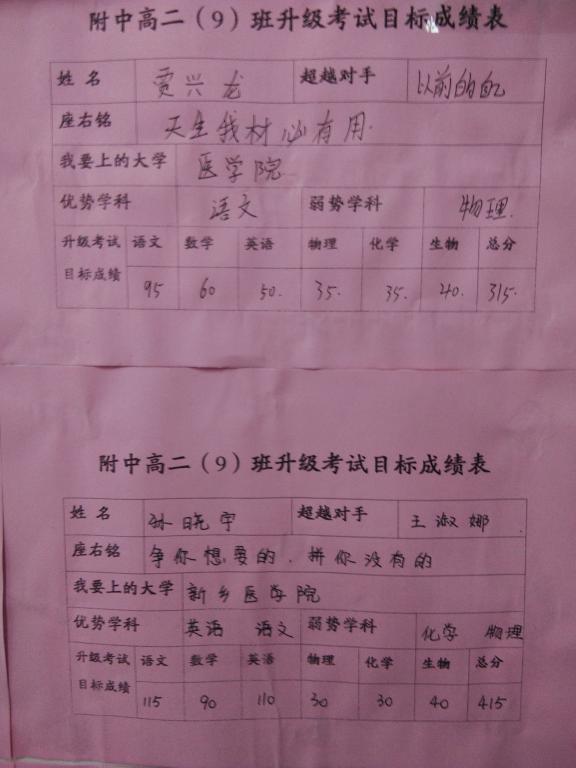 附中高二（9）班升级考试目标成绩表
姓名 贾兴龙 超越对手 以前的自己
座右铭 天生我材必有用.
我要上的大学 医学院
优势学科 语文 弱势学科 物理.
升级考试 语文 数学 英语 物理 化学 生物 总分
目标成绩 95 60 50. 35. 35. 40. 315.
附中高二（9）班升级考试目标成绩表
姓名 孙晓宇 超越对手 王淑娜.
座右铭 争你想要的.拼你没有的
我要上的大学 新乡医学院
优势学科 英语 语文 弱势学科 化学 物理
升级考试 语文 数学 英语 物理 化学 生物 总分
目标成绩 115 90 110 30 30 40 415